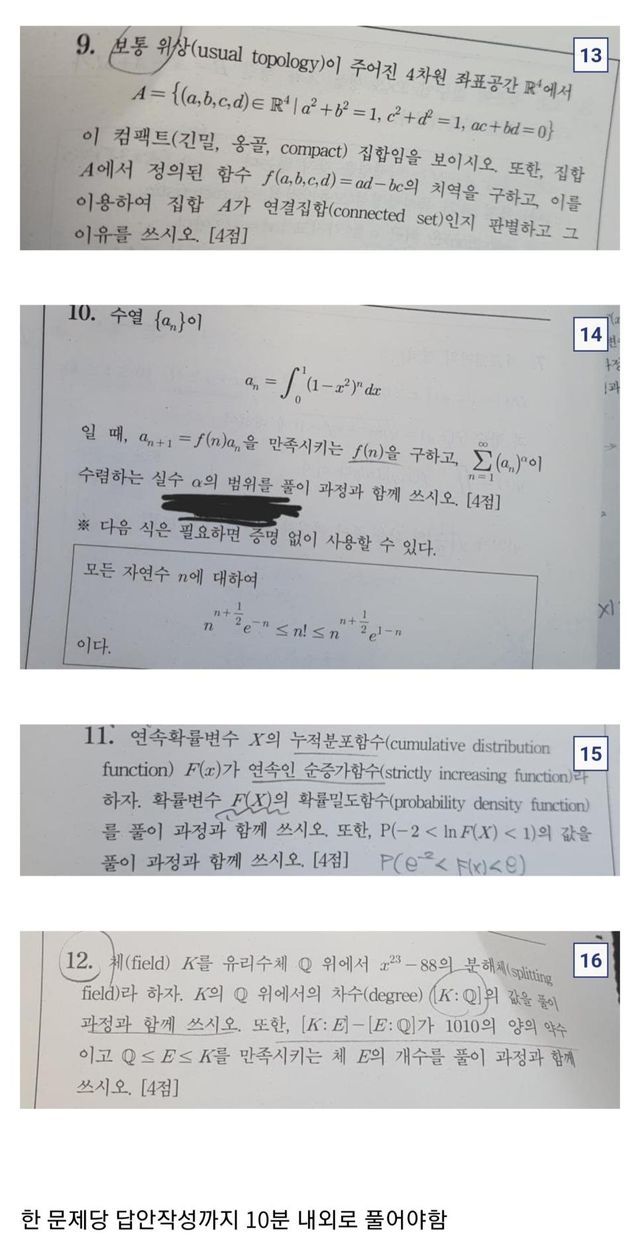 9. 보통 위상(usual topology)이 주어진 4차원 좌표공간 ℝ⁴에서
13
A={(a,b,c,d)∈ℝ⁴|a²+b²=1, c²+d²=1, ac+bd=0}
이 컴팩트(긴밀, 옹골, compact) 집합임을 보이시오. 또한, 집합
A에서 정의된 함수 f(a,b,c,d)=ad-bc의 치역을 구하고, 이를
이용하여 집합 A가 연결집합(connected set)인지 판별하고 그
이유를 쓰시오. [4점]
10. 수열 {aₙ}이
14
aₙ=∫₀¹(1-x²)ⁿdx
일 때, aₙ₊₁=f(n)aₙ을 만족시키는 f(n)을 구하고, ∑_{n=1}^{∞}(aₙ)^α이
수렴하는 실수 α의 범위를 풀이 과정과 함께 쓰시오. [4점]
※ 다음 식은 필요하면 증명 없이 사용할 수 있다.
모든 자연수 n에 대하여
n^{n+1/2}e^{-n} ≤ n! ≤ n^{n+1/2}e^{1-n}
이다.
11. 연속확률변수 X의 누적분포함수(cumulative distribution
15
function) F(x)가 연속인 순증가함수(strictly increasing function)라
하자. 확률변수 F(X)의 확률밀도함수(probability density function)
를 풀이 과정과 함께 쓰시오. 또한, P(-2<ln F(X)<1)의 값을
풀이 과정과 함께 쓰시오. [4점] P(e⁻²<F(x)<e)
12. 체(field) K를 유리수체 ℚ 위에서 x²³-88의 분해체(splitting
16
field)라 하자. K의 ℚ 위에서의 차수(degree) [K:ℚ]의 값을 풀이
과정과 함께 쓰시오. 또한, [K:E]-[E:ℚ]가 1010의 양의 약수
이고 ℚ≤E≤K를 만족시키는 체 E의 개수를 풀이 과정과 함께
쓰시오. [4점]
한 문제당 답안작성까지 10분 내외로 풀어야함